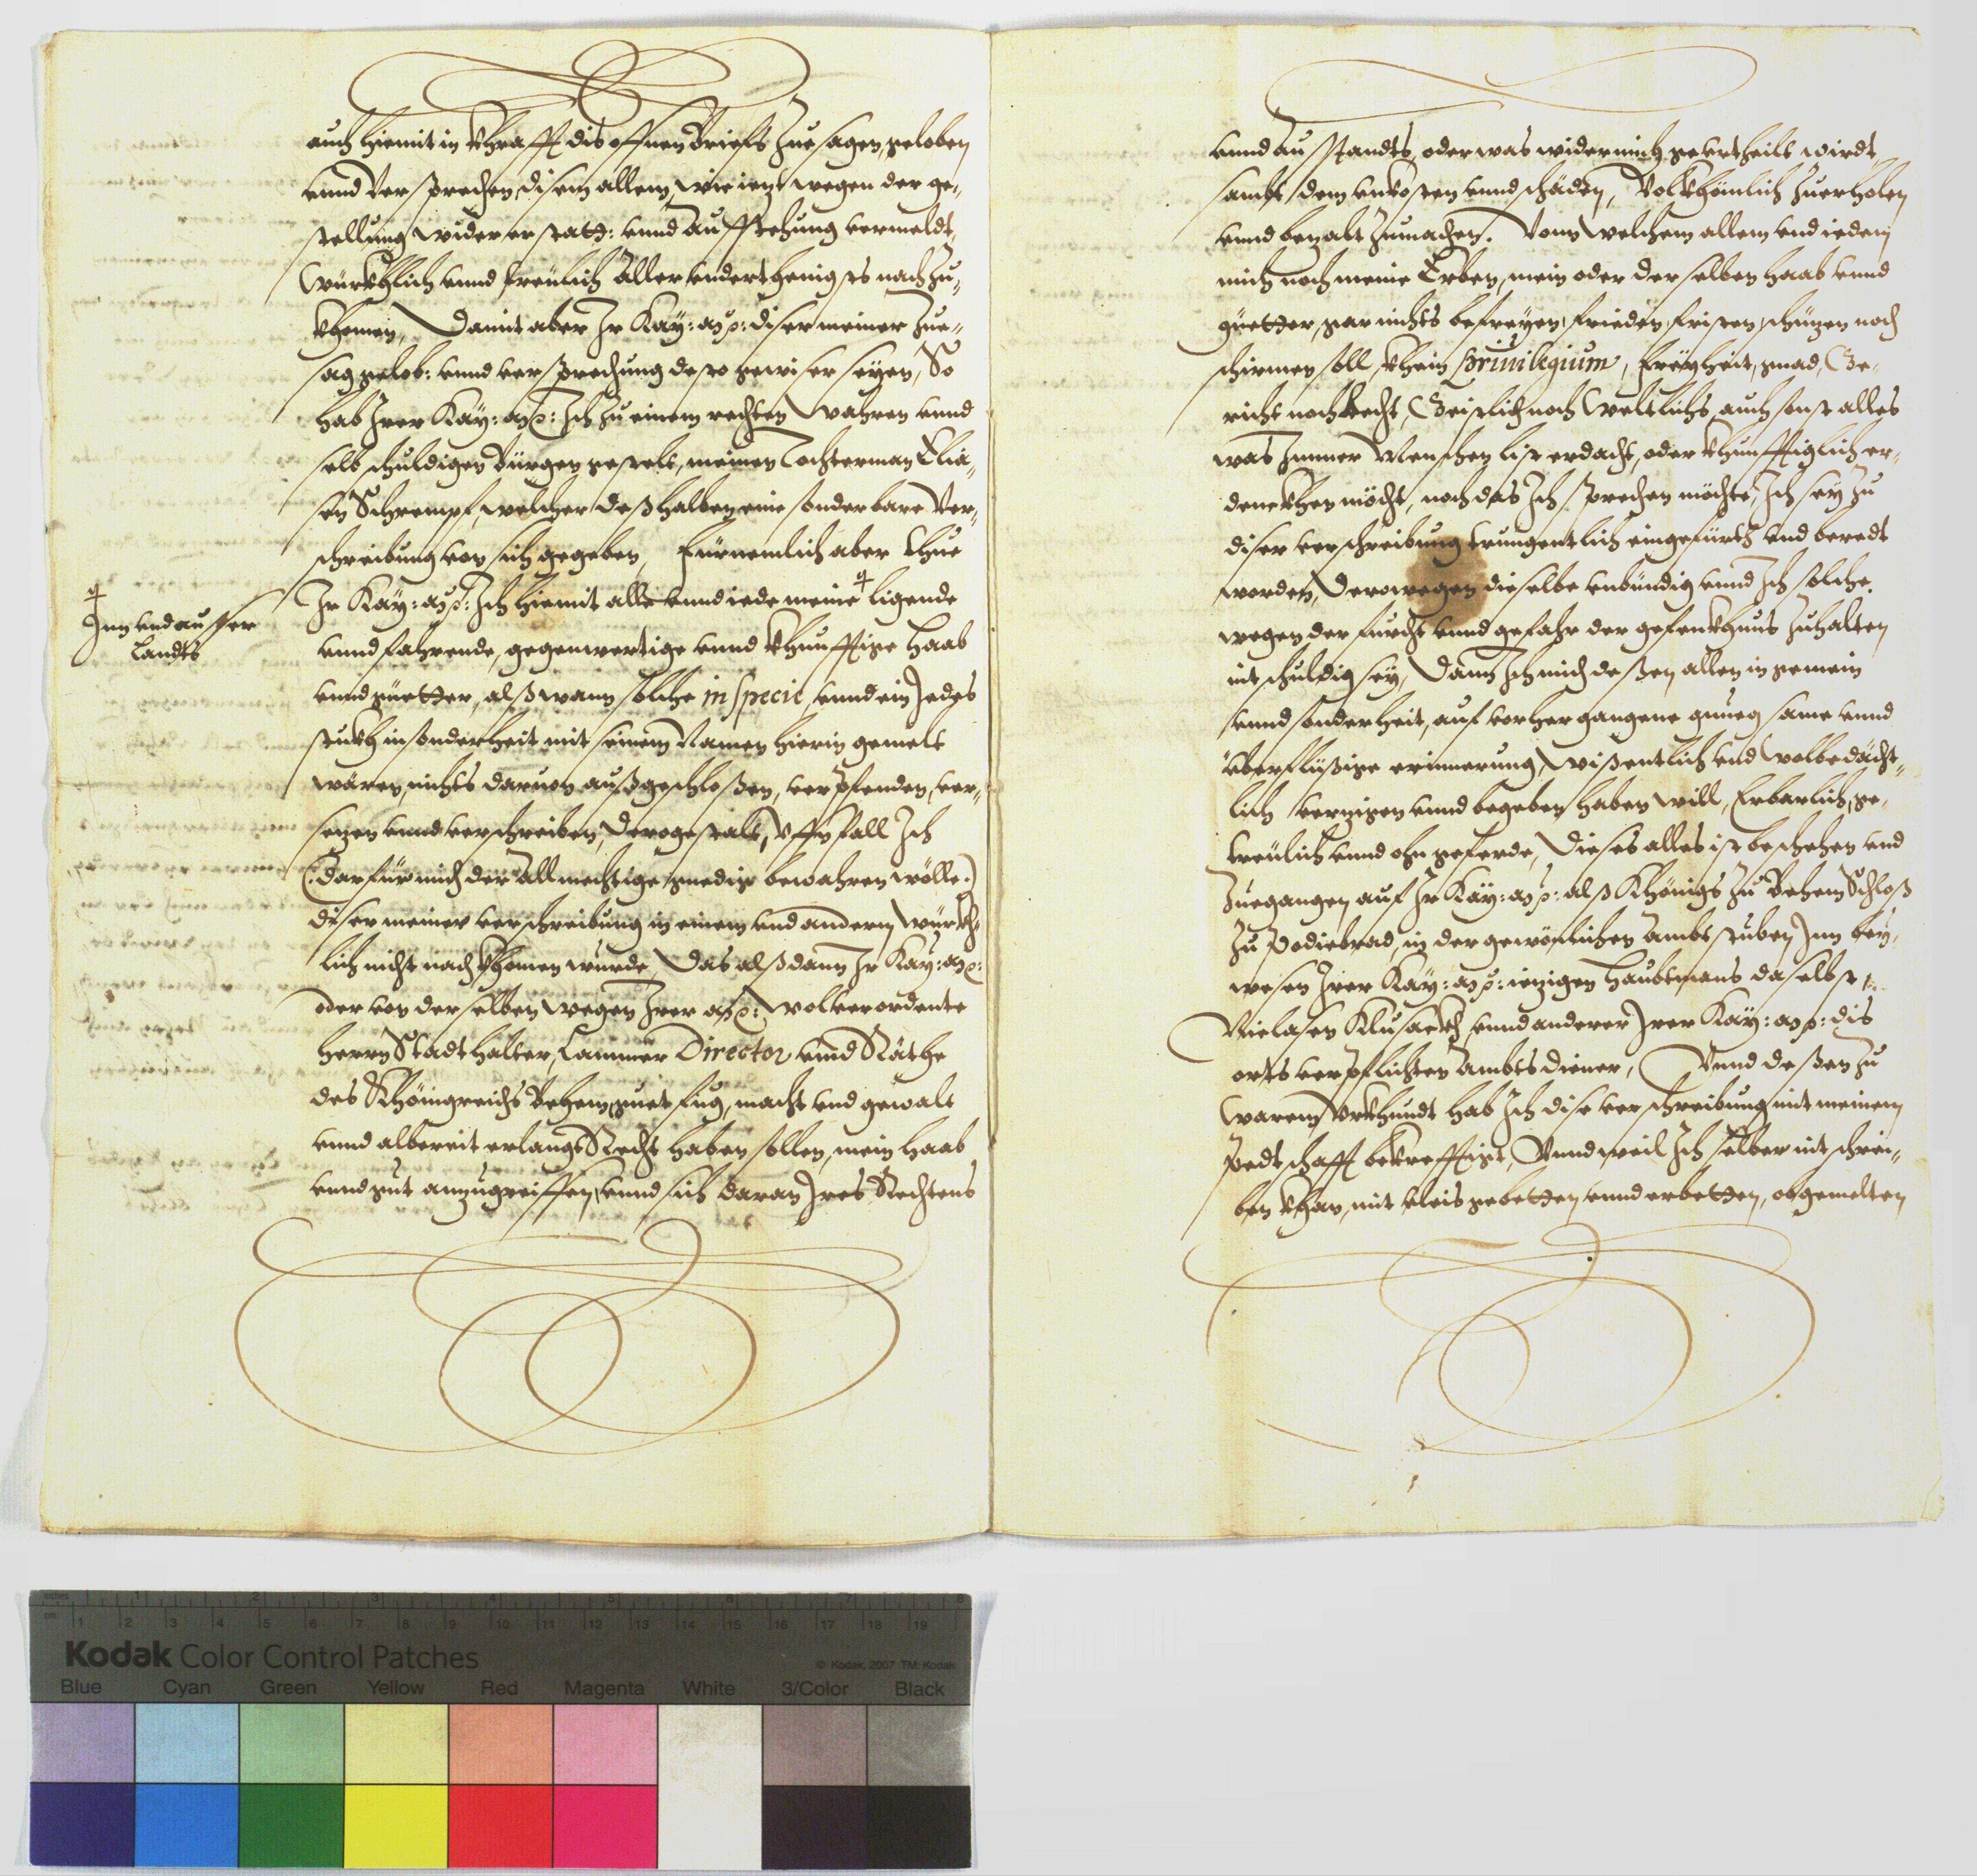 auch hiemit in Khrafft dis offnen Briefs Zuesagen, geloben
vnnd Versprechen, disem allem, wie iezt wegen der ge-
stellung, widererstatt: vnnd Aufstehung vermeldt,
Würkhlich vnnd treülich Aller vnderthenigsts nachzu-
khomen, Damit aber Ir Kay: Mt: diser meiner Zue-
sag, gelob: vnnd versprechung desto gewiser seyen, So
hab Irer Kay: Mt: Ich zu einem rechten Wahren vnnd
selbschuldigen Bürgen gestelt, meinen Tochterman Elia-
sen Schrempf, welcher deßhalben eine sonderbare Ver-
schreibung von sich gegeben, Fürnemlich aber thue
Ir Kay: Mt: Ich hiemit alle vnnd iede meine ligende
Inn vnd ausser
Landts
vnnd fahrende, gegenwertige vnnd khünfftige Haab
vnnd güetter, alß wann solche in specie, vnnd ein Jedes
stukh insonderheit mit seinem Namen hierin gemelt
wären, nichts daruon außgeschloßen, verpfenden, ver-
sezen vnnd verschreiben, Derogestalt, Uffn fall Ich
(: darfür mich der Allmechtige gnedig bewahren wölle :)
diser meiner verschreibung in einem vnd andern würkh-
lich nicht nachkhomen wurde, Das alßdann Ir Kay: Mt:
oder von derselben wegen Irer Mt: wolverordente
Herrn Stadthalter, Cammer Director vnnd Räthe
des Khönigreichs Behem, guet fug, macht vnd gewalt
vnnd albereit erlangt Recht haben sollen, mein Haab
vnnd gut anzugreiffen, vnnd sich daran Ires Rechtens
vnnd Ausstandts, oder was wider mich geurtheilt wirdt,
sambt dem vnkosten vnnd schäden, Volkhömlich zuerholen
vnnd bezalt zumachen. Vonn welchem allem vnd iedem
mich noch meine Erben, mein oder derselben Haab vnnd
güetter, gar nichts befreyen, frieden, fristen, schüzen noch
schirmen soll, khein Priuilegium, Freyheit, gnad, Ge-
richt noch Recht, Geistlich noch Weltlichs, auch sonst alles
was Immer Menschen list erdacht, oder khünfftiglich er-
denckhen möcht, noch das Ich sprechen möchte, Ich sey zu
diser verschreibung trungentlich eingefürth vnd beredt
worden, Derowegen dieselbe vnbündig vnnd Ich solche
wegen der furcht vnnd gefahr der gefenkhnus zuhalten
nit schuldig sey, Dann Ich mich deßen allen in gemein
vnnd sonderheit, auf vorhergangene gnuegsame vnnd
überflüßige erinnerung, wißentlich vnd wolbedächt-
lich verzigen vnnd begeben haben will, Erbarlich, ge-
treülich vnnd ohn geferde, Dieses alles ist beschehen vnd
Zuegangen auf Ir Kay: Mt: alß Khönigs zu Behem Schloß
zu Podiebrad, in der gewönlichen Ambtstuben, Inn bey-
wesen Irer Kay: Mt: iezigen Haubtmans daselbst
Niclasen Klusackh, vnnd anderer Irer Kay: Mt: dis
orts verpflichten Ambtsdiener, Vnnd deßen zu
Warem Vrkhundt hab Ich dise verschreibung mit meinem
Pedtschafft bekrefftigt, Vnnd weil Ich selber nit schrei-
ben khan, mit vleis gebetten vnnd erbetten, obgemelten
Kodak Color Control Patches
© Kodak, 2007 TM: Kodak
Blue Cyan Green Yellow Red Magenta White 3/Color Black